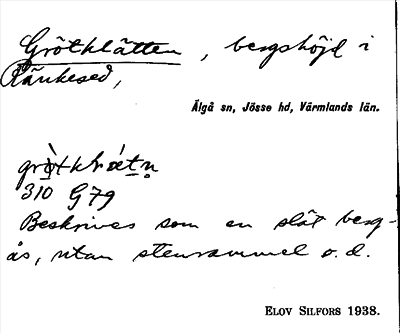 Grötklätten, bergshöjd i
Ränkesed,
Älgå sn, Jösse hd, Värmlands län.
310 G79
Beskrives som en slät berg-
ås, utan stenrammel o.d.
ELOV SILFORS 1938.